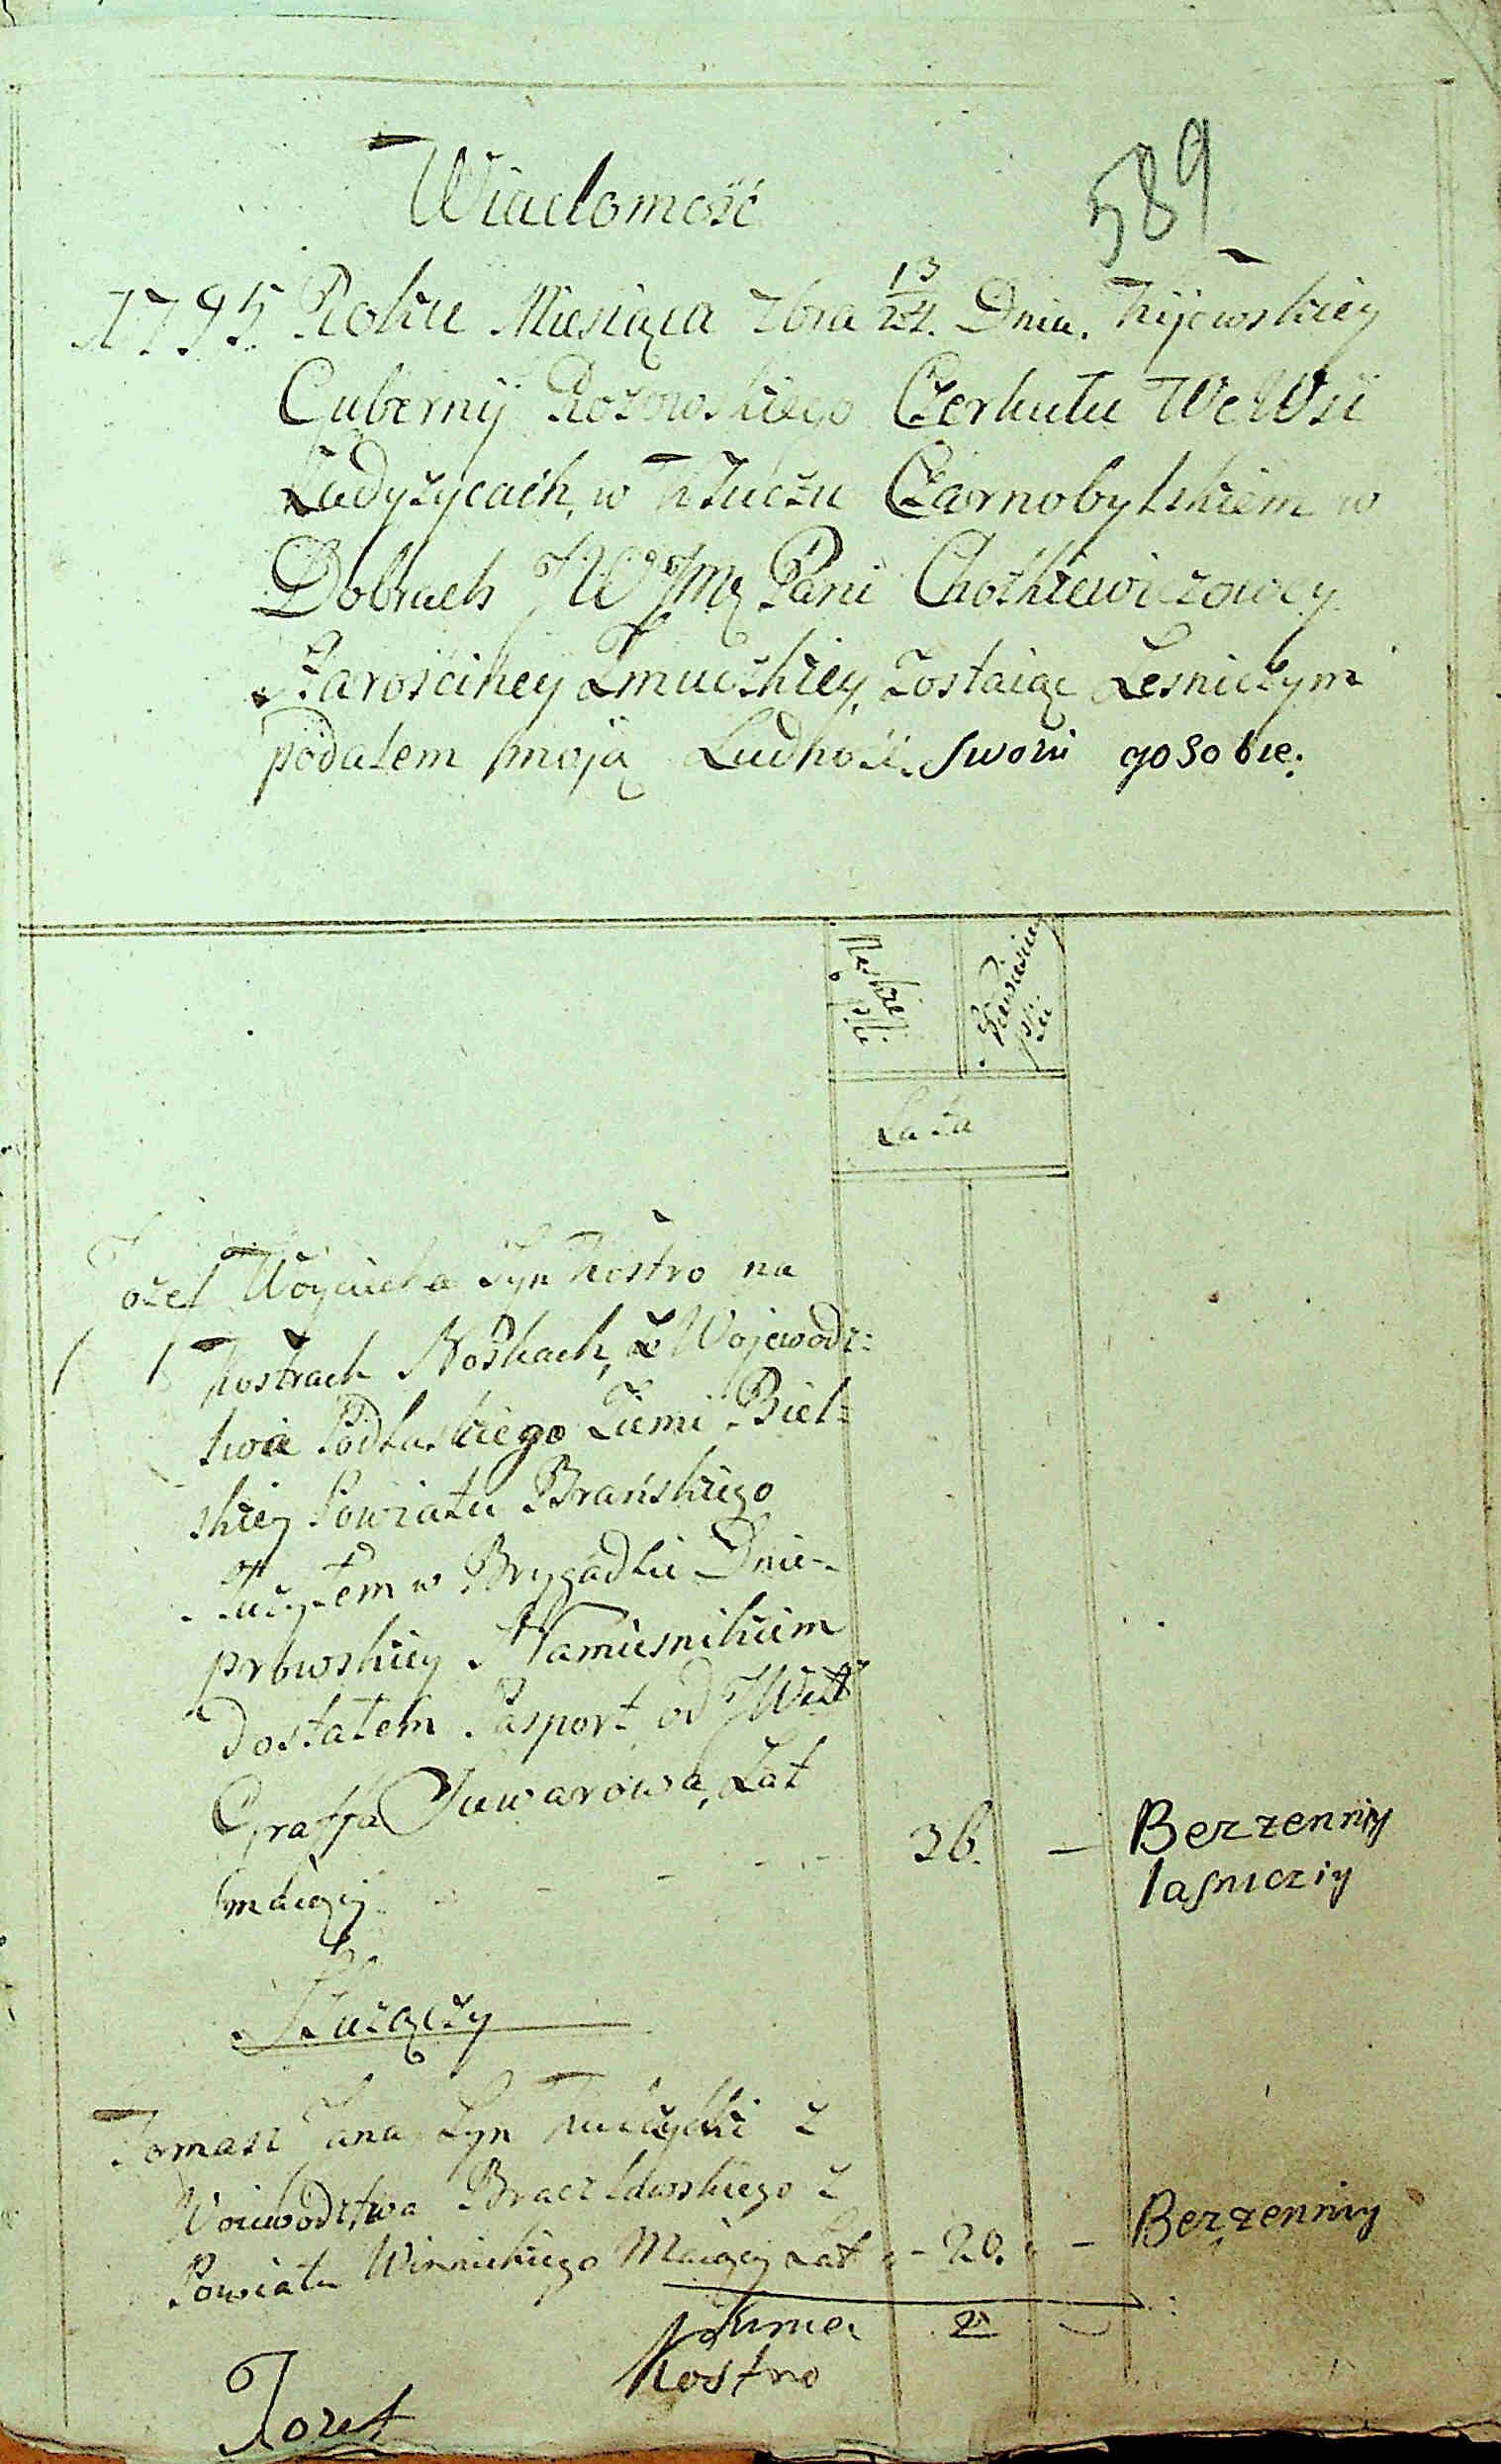 Wiadomość
589
1795 Roku Miesiąca 7bra 13/24. Dnia. Kijowskiey
Gubernij Rożowskiego Czerkułu We Wsi
Ładyżycach, w Kluczu Czarnobylskiem w
Dobrach JW JMę Pani Chotkiewiczowey
Starościney Zmuczkiey, zostaiąc Lesniczym
podałem moją Ludność. swoi gosobie.
Męskiey płci
Lata
Jozef Woyciecha Syn Kostro na
1 1 Kostrach Noskach, z Wojewodz:
twa Podlaskiego Ziemi Biel=
skiey Powiatu Brańskiego
Służyłem w Brygadzie Dnie-
prowskiey Namiesnikiem
dostałem Pasport od JW
Graffa Suwarowa, Lat
maiący - - - - 36. — Bezzenniy
lasnicziy
Służączy
Tomasz Jana Syn z
Woiewodztwa Braczławskiego z
Powiatu Winnickiego Maiący Lat - 20. - Bezzenniy
Summa 2
Jozef Kostro